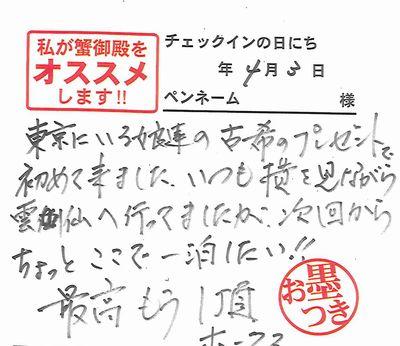 私が蟹御殿を
オススメ
します!!
チェックインの日にち
年 4 月 3 日
ペンネーム 様
東京にいる娘達の古希のプレゼントで
初めて来ました、いつも横を見ながら
雲仙へ行ってましたが、次回から
ちょっとここで一泊したい!!
最高もう1度
お墨つき